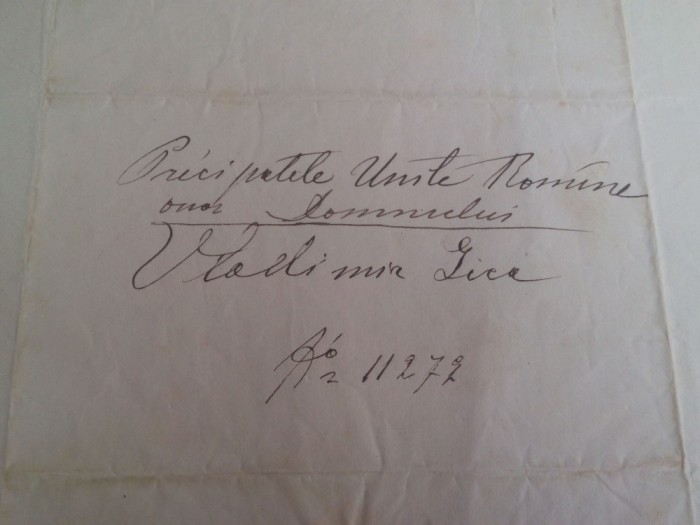 Précipatele Unite Romîne
onor Domnului
Vladimir Gica
11272